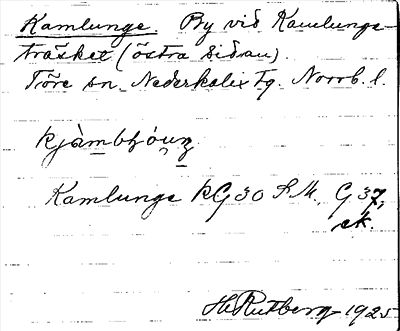 Kamlunge. By vid Kamlunge-
träsket (östra sidan).
Töre sn. Nederkalix tg. Norrb. l.
Kamlunge KG 30 S M. G 37,
ek.
H Rutberg 1925